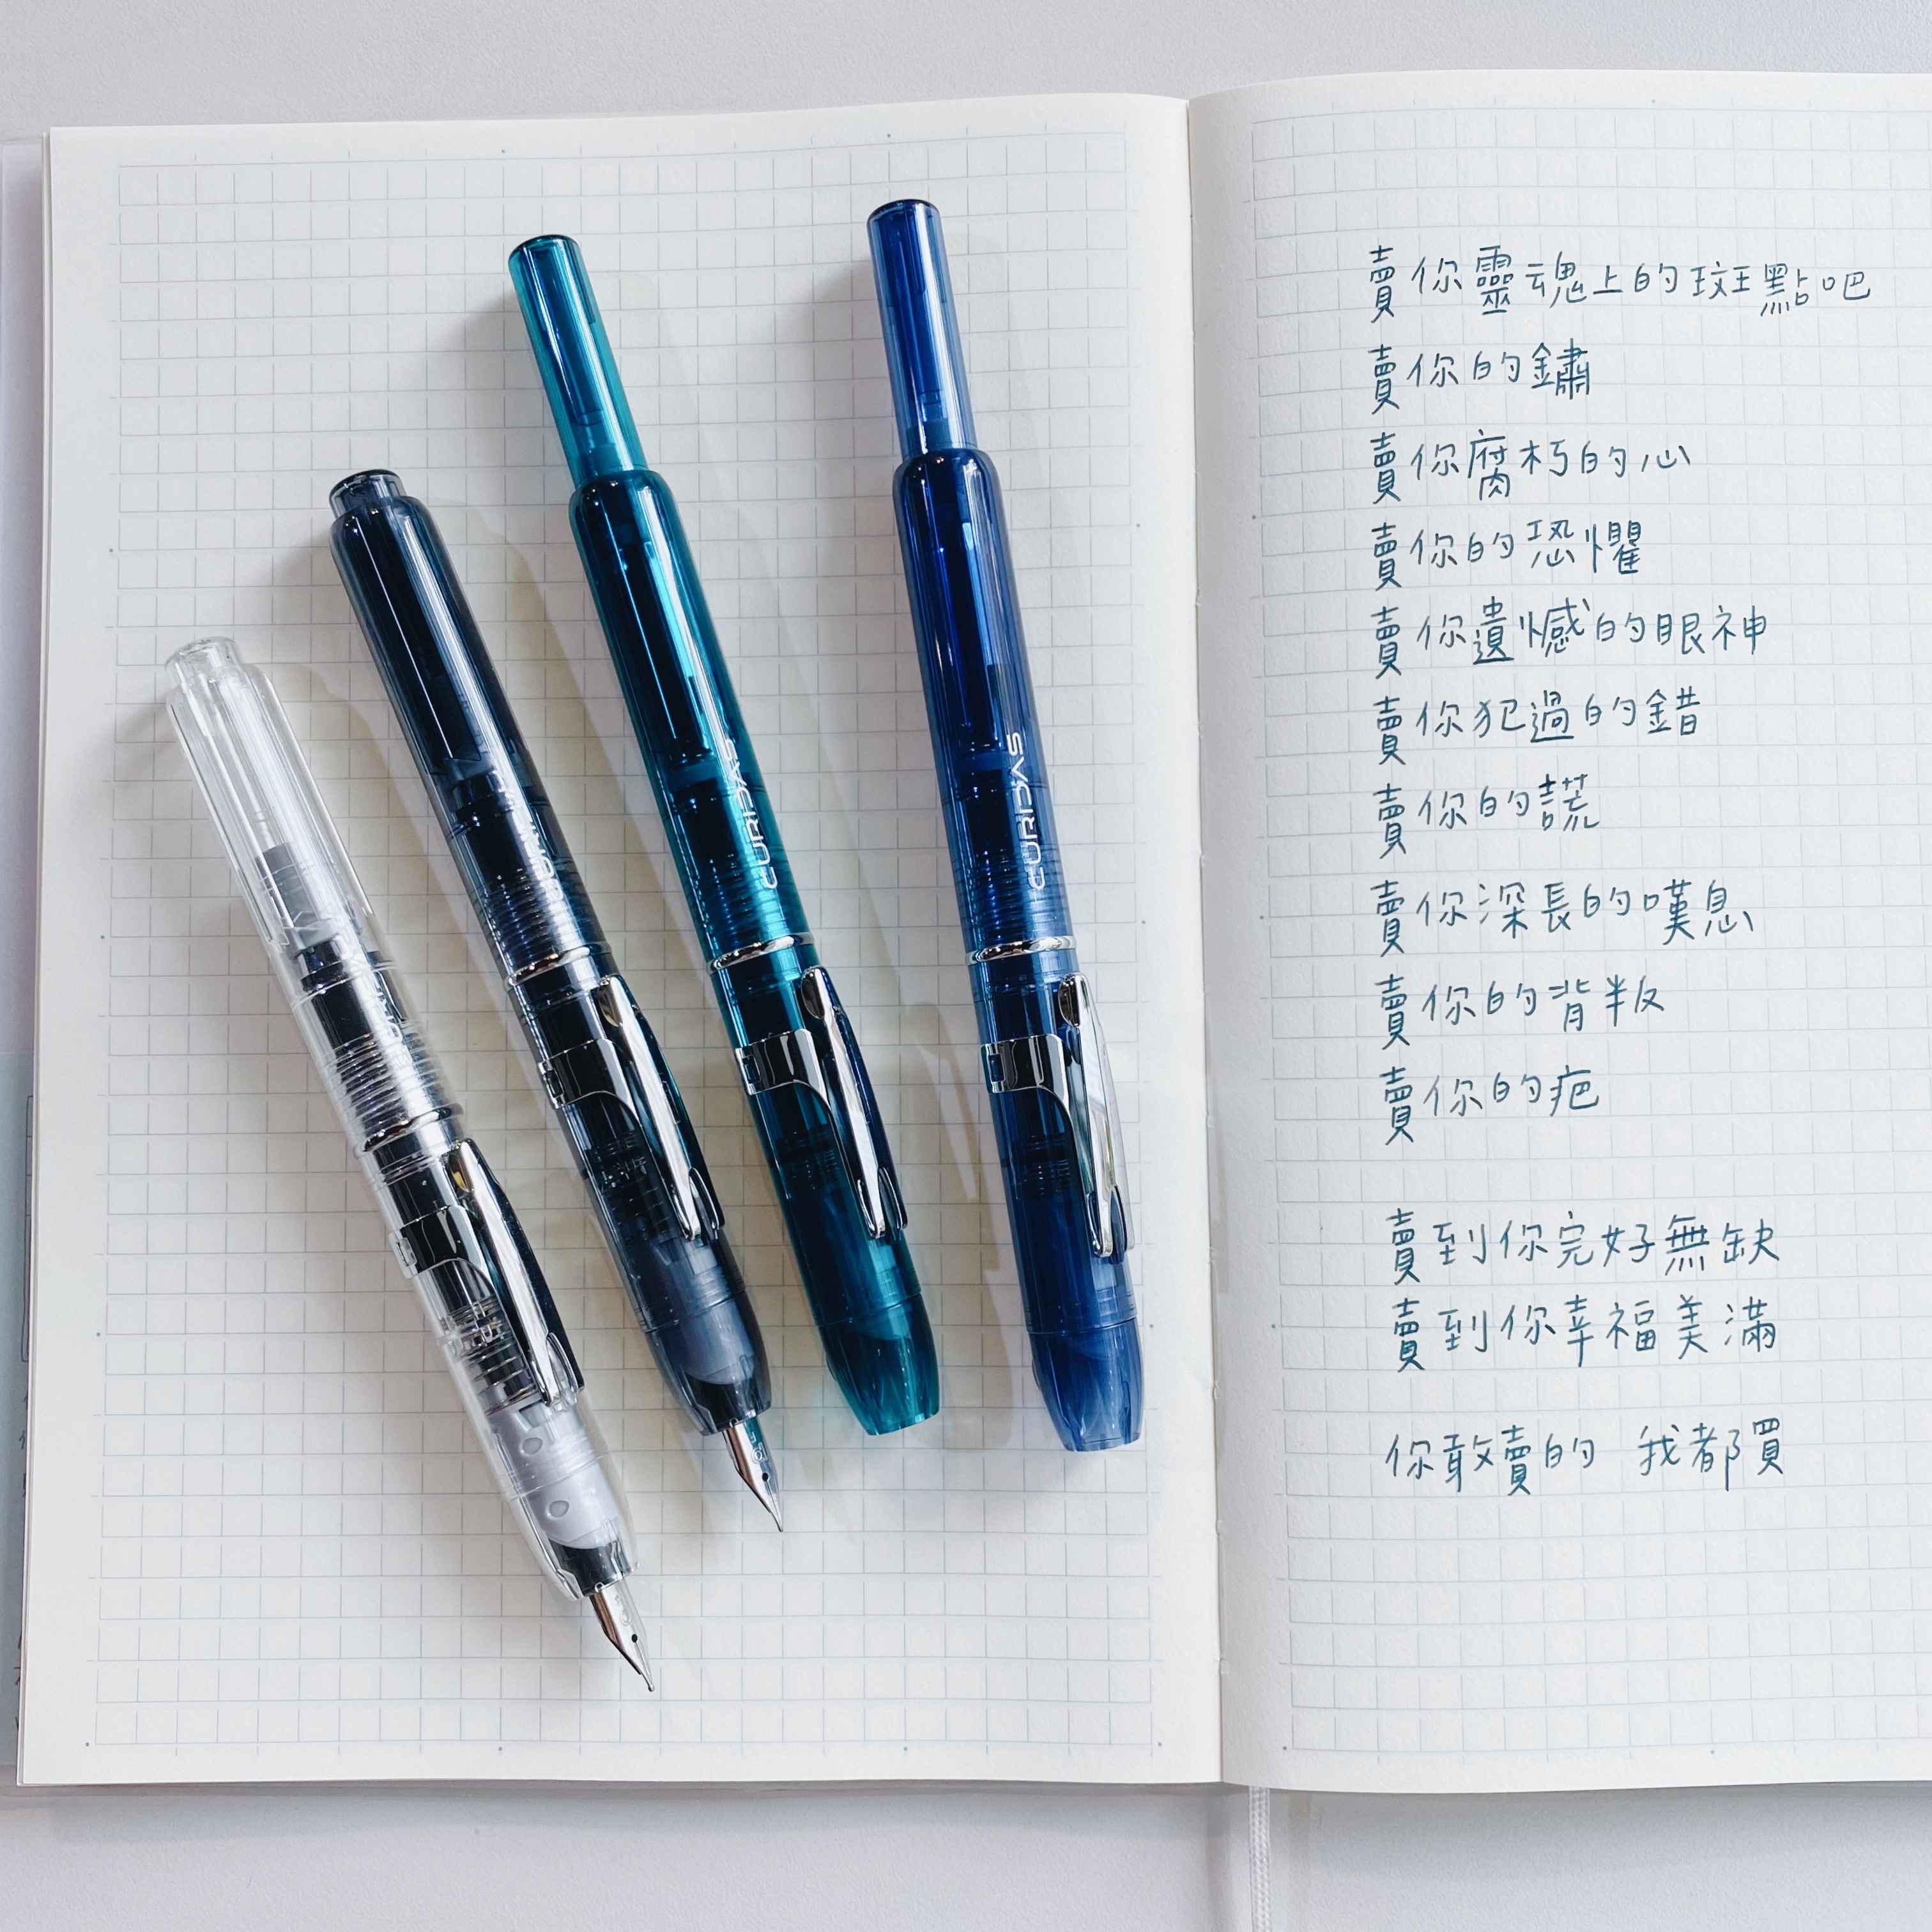 CURIDAS
CURIDAS
賣你靈魂上的斑點吧
賣你的鏽
賣你腐朽的心
賣你的恐懼
賣你遺憾的眼神
賣你犯過的錯
賣你的謊
賣你深長的嘆息
賣你的背叛
賣你的疤
賣到你完好無缺
賣到你幸福美滿
你敢賣的 我都買